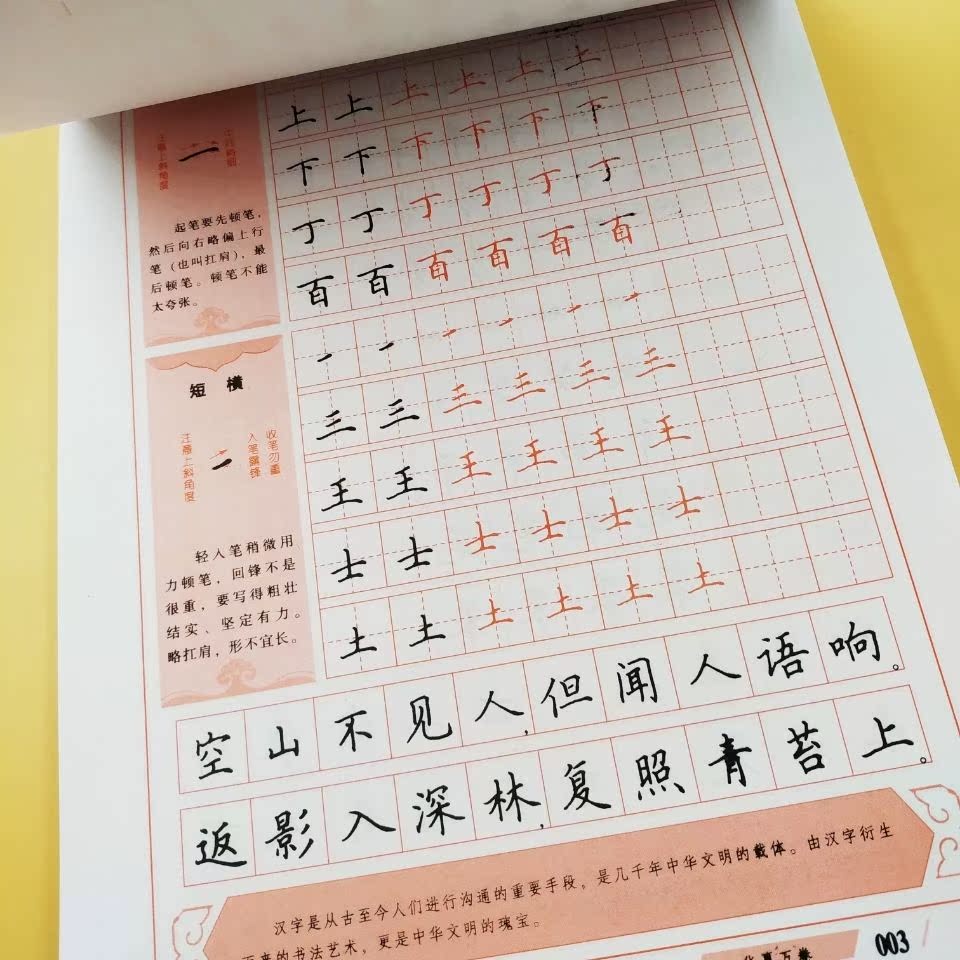 上上上上上上
下下下下下下
丁丁丁丁丁丁
百百百百百百
注意上斜角度
一
起笔要先顿笔,
然后向右略偏上行
笔(也叫扛肩),最
后顿笔。顿笔不能
太夸张。
一一一一一一
三三三三三三
王王王王王王
士士士士士士
土土土土土土
短横
注意上斜角度
入笔露锋
收笔勿重
轻入笔稍微用
力顿笔,回锋不是
很重,要写得粗壮
结实、坚定有力。
略扛肩,形不宜长。
空山不见人,但闻人语响。
返景入深林,复照青苔上。
汉字是从古至今人们进行沟通的重要手段,是几千年中华文明的载体。由汉字衍生
而来的书法艺术,更是中华文明的瑰宝。
华夏万卷
003